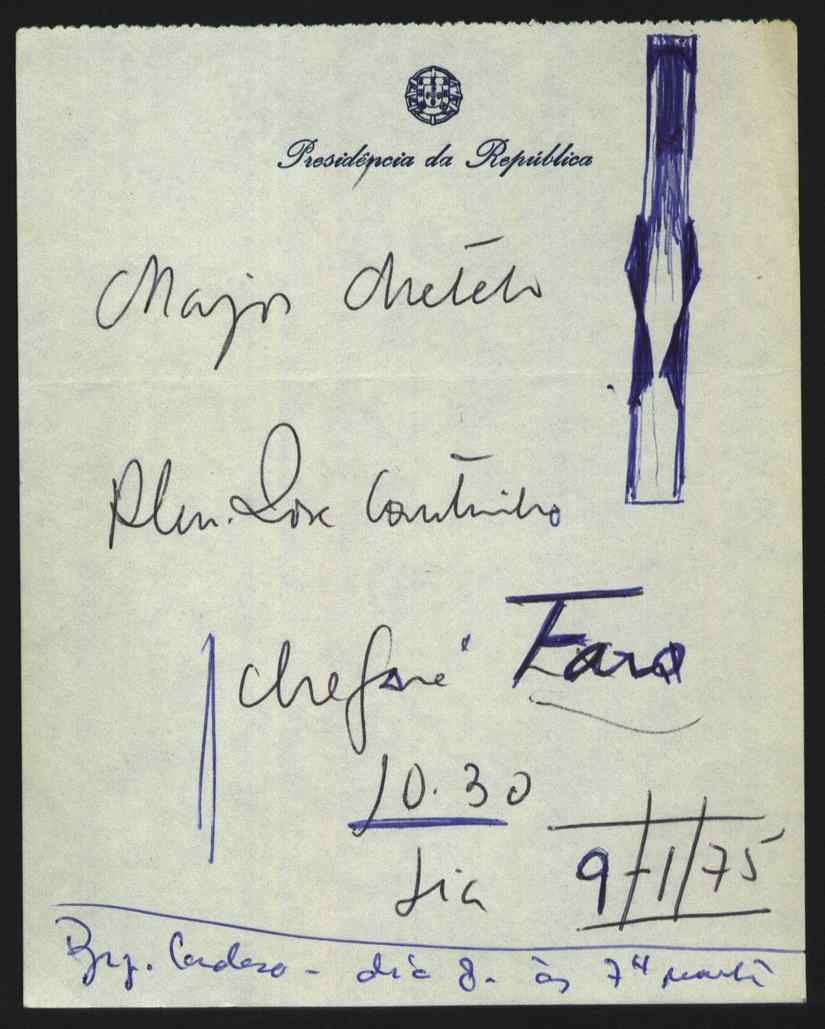 Presidência da República
Major Metelo
Alm. Rosa Coutinho
chega a Faro
10.30
dia 9/1/75
Brig. Cardoso - dia 8. às 7H